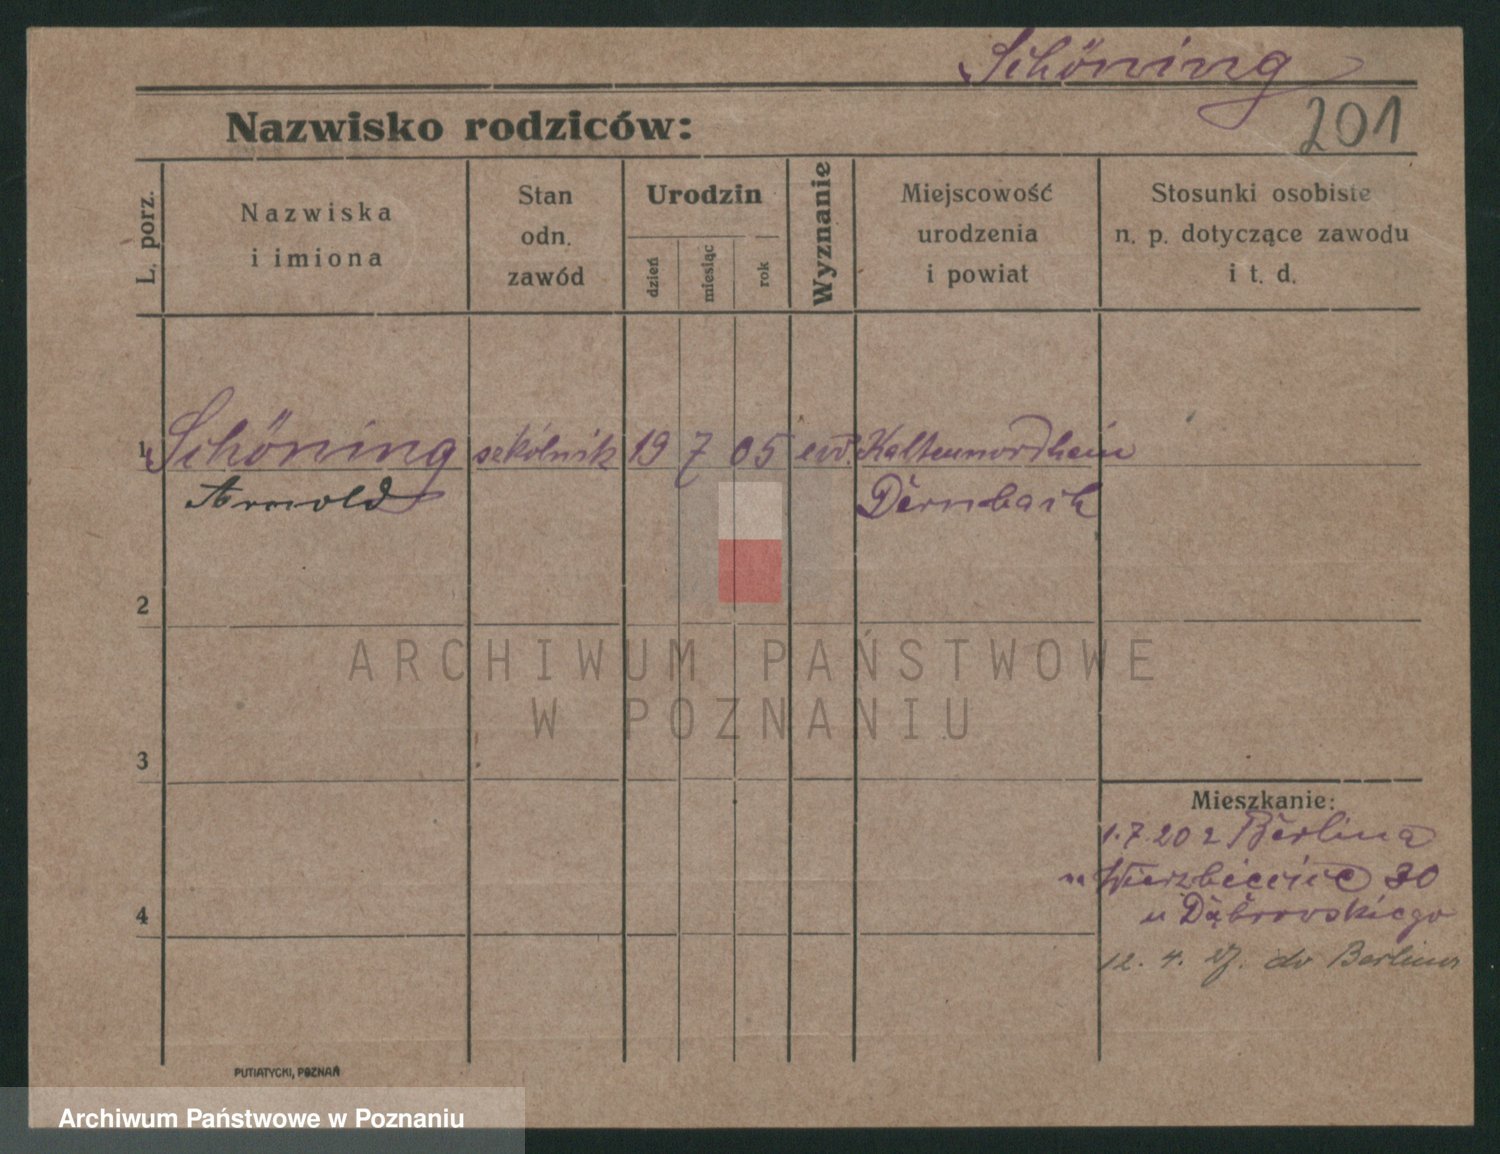 Schöning
201
Nazwisko rodziców:
L. porz.
Nazwiska
i imiona
Stan
odn.
zawód
Urodzin
dzień
miesiąc
rok
Wyznanie
Miejscowość
urodzenia
i powiat
Stosunki osobiste
n. p. dotyczące zawodu
i t. d.
1 Schöning szkólnik 19 7 05 ew. Kaltennordheim
Arnold Dermbach
2
3
4
Mieszkanie:
1.7.20 z Berlina
Wierzbięcice 30
u Dąbrowskiego
12. 4. 27. do Berlina
PUTIATYCKI, POZNAŃ
ARCHIWUM PAŃSTWOWE
W POZNANIU
Archiwum Państwowe w Poznaniu